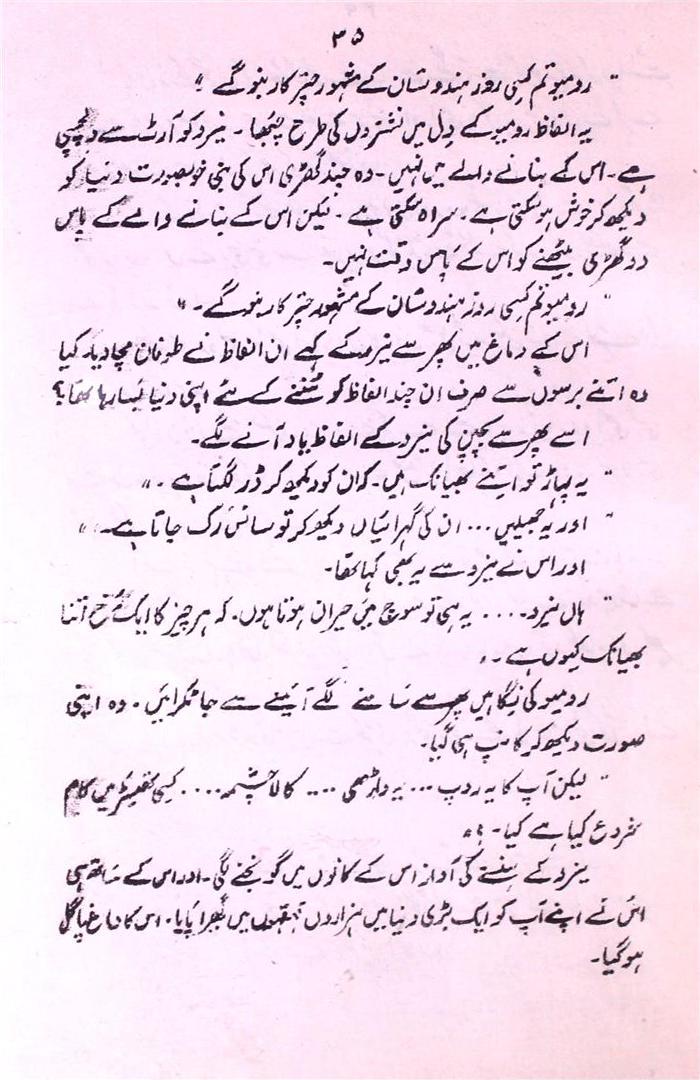 ۳۵
" رومیو تم کسی روز ہندوستان کے مشہور چتر کار بنو گے "
یہ الفاظ رومیو کے دِل میں نشتروں کی طرح چُبھا ۔ نیرو کو آرٹ سے دلچسپی
ہے ۔ اس کے بنانے والے میں نہیں ۔ وہ چند گھڑی اس کی بنی خوبصورت دنیا کو
دیکھ کر خوش ہو سکتی ہے ۔ سراہ سکتی ہے ۔ لیکن اس کے بنانے والے کے پاس
دو گھڑی بیٹھنے کو اس کے پاس وقت نہیں ۔
" رومیو تم کسی روز ہندوستان کے مشہور چتر کار بنو گے ۔ "
اس کے دماغ میں پھر سے نیرو کے کہے ان الفاظ نے طوفان مچا دیا ۔ کیا
وہ اتنے برسوں سے صرف ان چند الفاظ کو سُننے کے لئے اپنی دنیا بسا رہا تھا ؟
اسے پھر سے بچپن کی نیرو کے الفاظ یاد آنے لگے ۔
" یہ پہاڑ تو اتنے بھیانک ہیں ۔ کہ ان کو دیکھ کر ڈر لگتا ہے ۔ "
" اور یہ جھیلیں ... ان کی گہرائیاں دیکھ کر تو سانس رُک جاتا ہے ۔ "
اور اس نے نیرو سے یہ بھی کہا تھا ۔
" ہاں نیرو .... یہ ہی تو سوچ میں حیران ہوتا ہوں ۔ کہ ہر چیز کا ایک رُخ اتنا
بھیانک کیوں ہے ۔ "
رومیو کی نگاہیں پھر سے سامنے لگے آئینے سے جا ٹکرائیں ۔ وہ اپنی
صورت دیکھ کر کانپ ہی گیا ۔
" لیکن آپ کا یہ روپ ... یہ داڑھی .... کالا چشمہ .... کسی تھیٹر میں کام
شروع کیا ہے کیا ۔ ؟ "
نیرو کے ہنسنے کی آواز اس کے کانوں میں گونجنے لگی ۔ اور اس کے ساتھ ہی
اس نے اپنے آپ کو ایک بڑی دنیا میں ہزاروں قہقہوں میں گھرا پایا ۔ اس کا دماغ پاگل
ہو گیا ۔